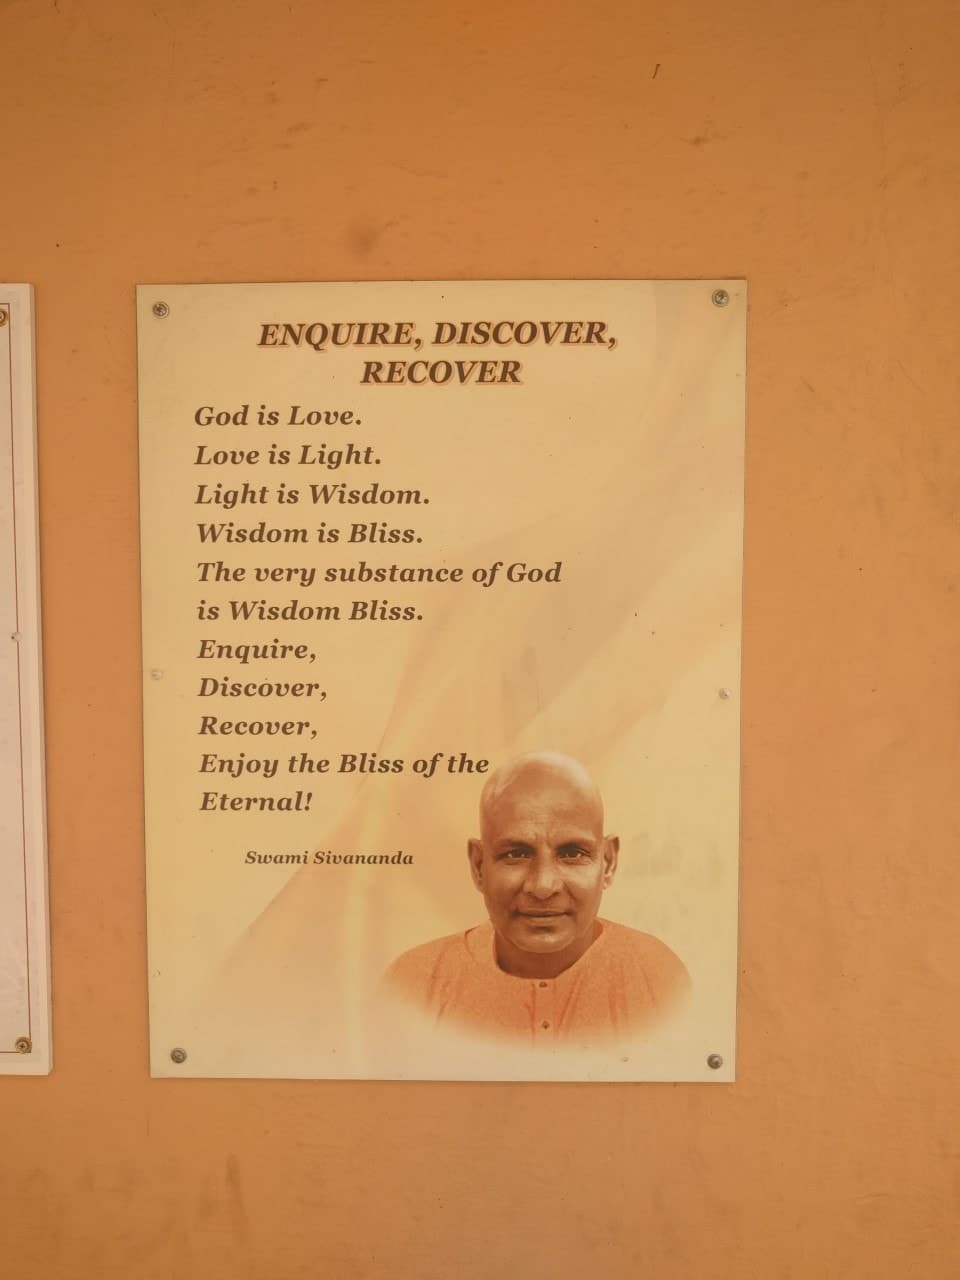 ENQUIRE, DISCOVER,
RECOVER
God is Love.
Love is Light.
Light is Wisdom.
Wisdom is Bliss.
The very substance of God
is Wisdom Bliss.
Enquire,
Discover,
Recover,
Enjoy the Bliss of the
Eternal!
Swami Sivananda